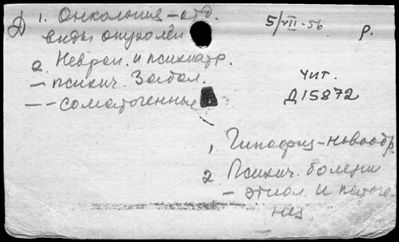 Д 1. Онкология - отд.
виды опухолей
5/VII-56 р.
2. Неврол. и психиатр.
- психич. забол.
-- соматогенные
чит.
Д15872
1. Гипофиз - новообр.
2 Психич. болезни
- этиол. и патоге
нез